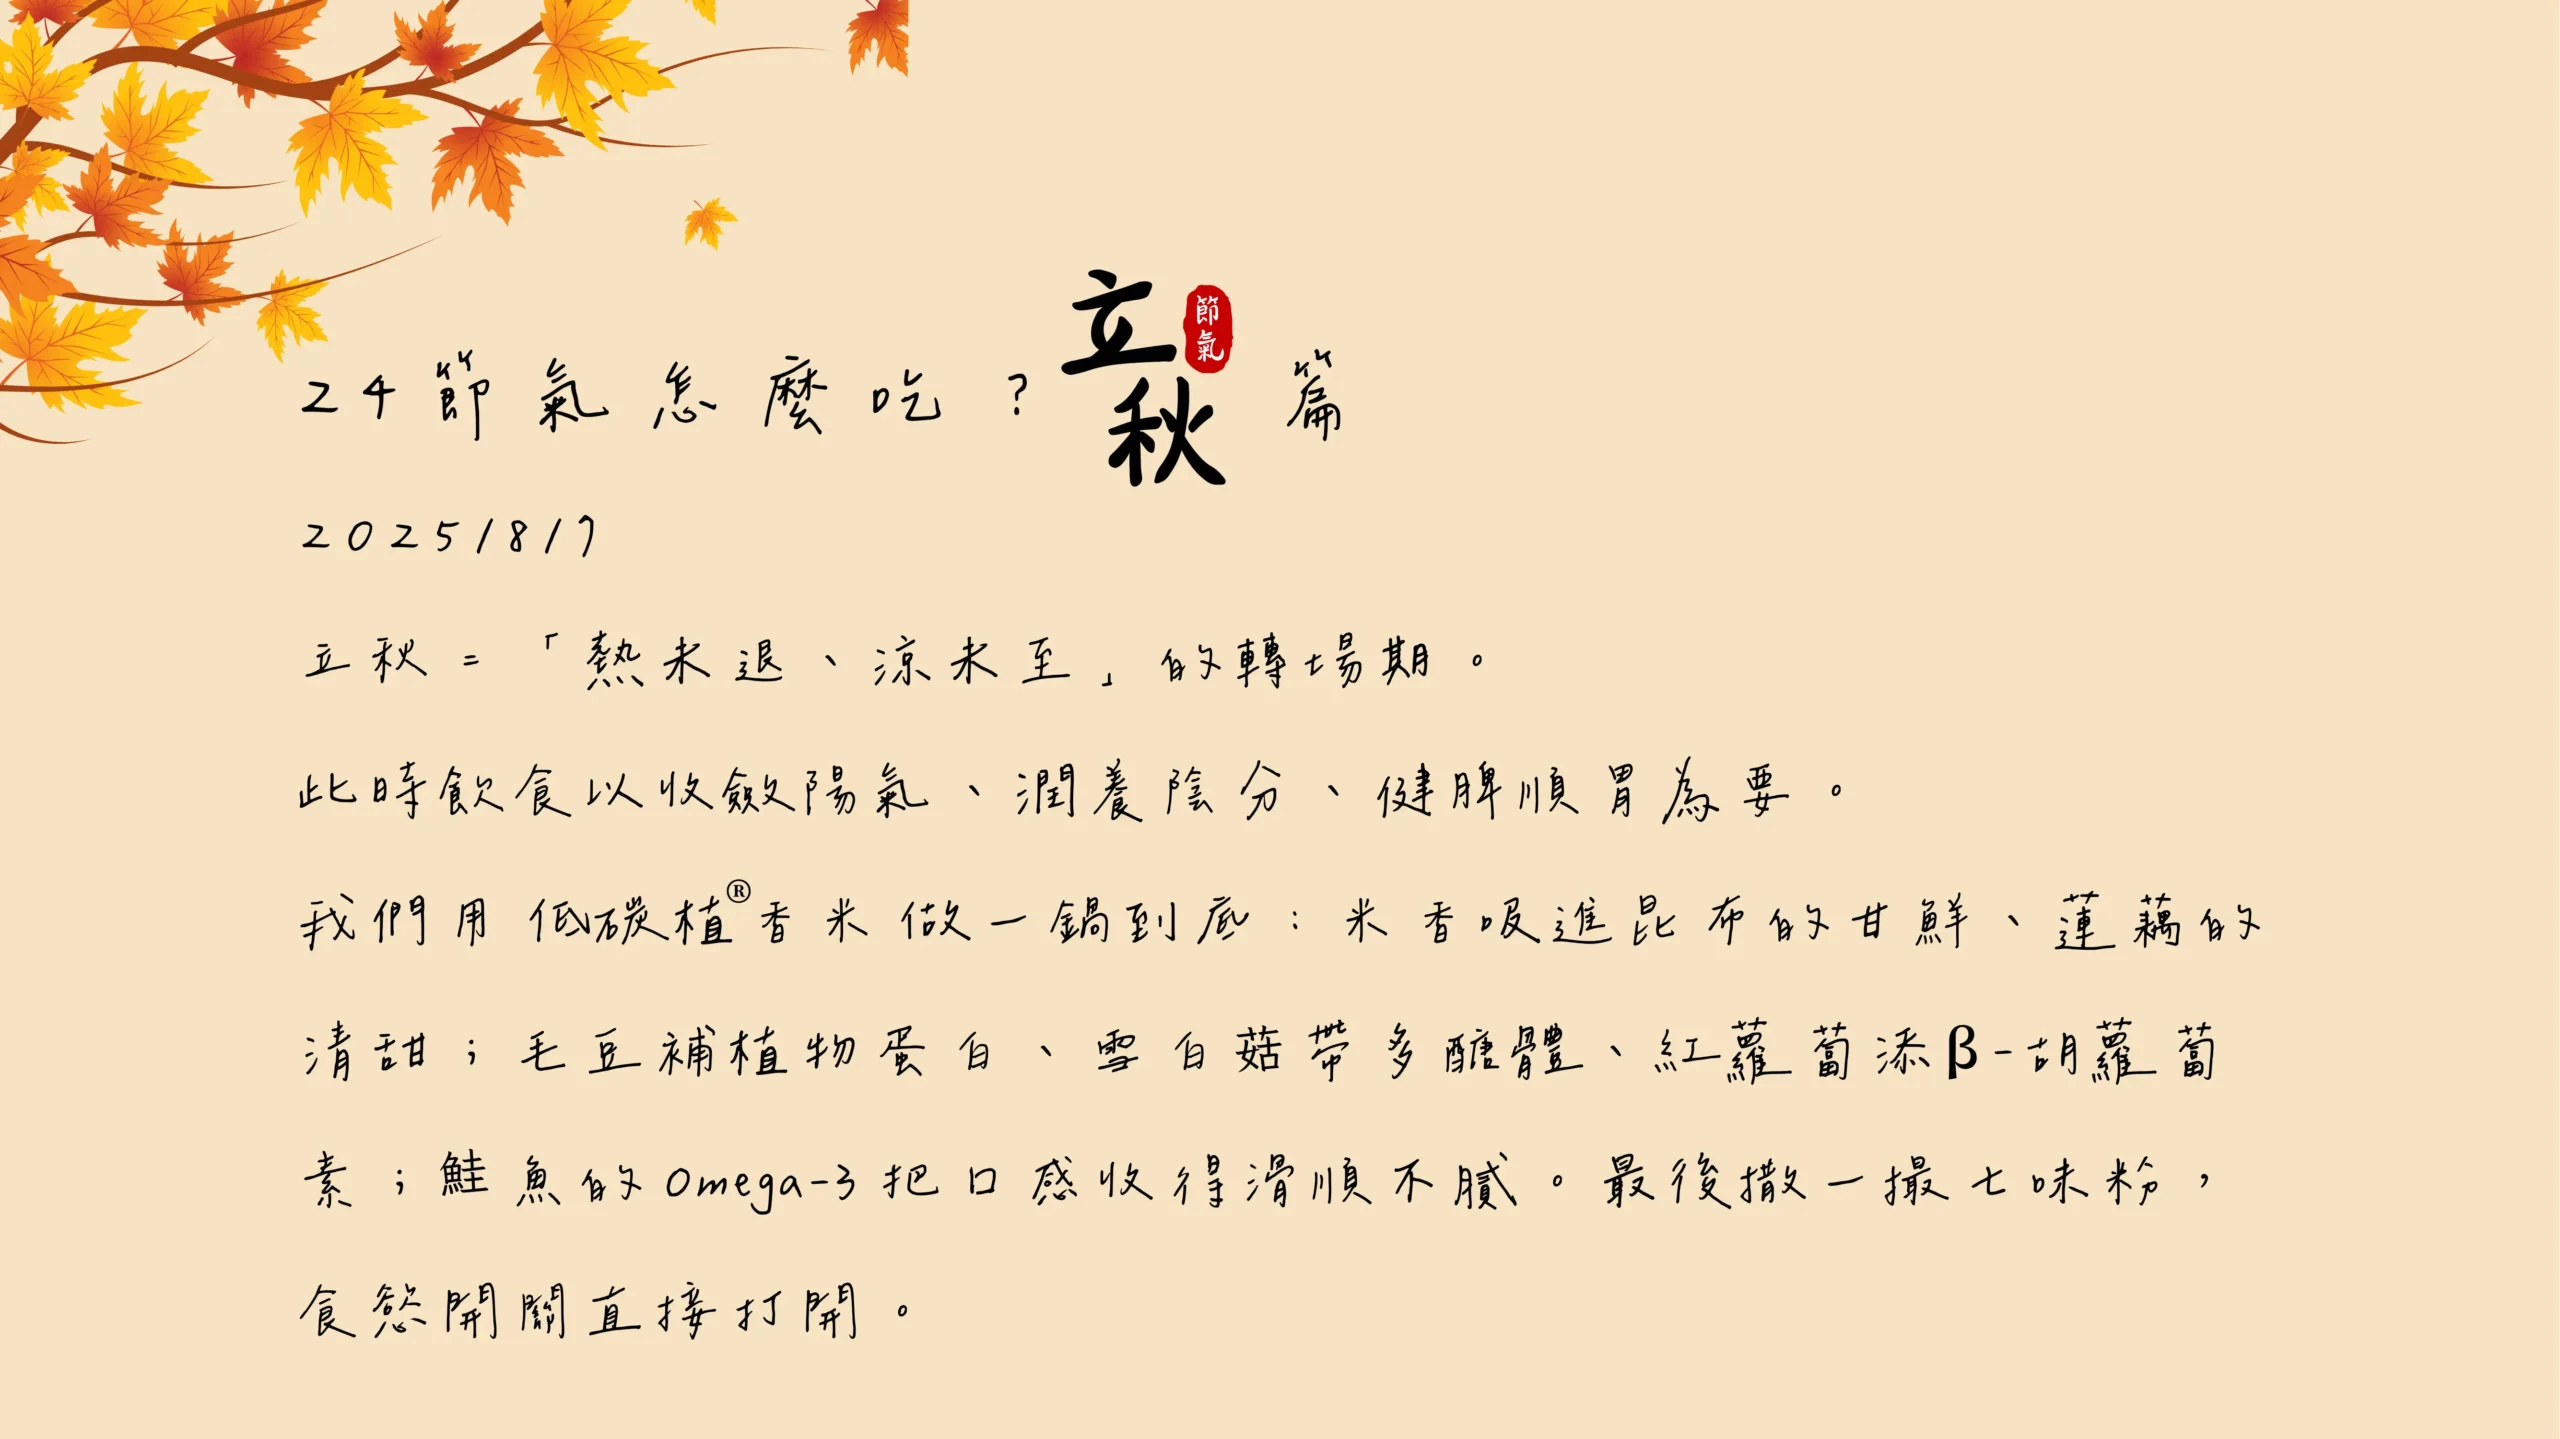 24節氣怎麼吃？立秋節氣篇
2025/8/7
立秋=「熱未退、涼未至」的轉場期。
此時飲食以收斂陽氣、潤養陰分、健脾順胃為要。
我們用低碳植®香米做一鍋到底：米香吸進昆布的甘鮮、蓮藕的
清甜；毛豆補植物蛋白、雪白菇帶多醣體、紅蘿蔔添β-胡蘿蔔
素；鮭魚的Omega-3把口感收得滑順不膩。最後撒一撮七味粉，
食慾開關直接打開。